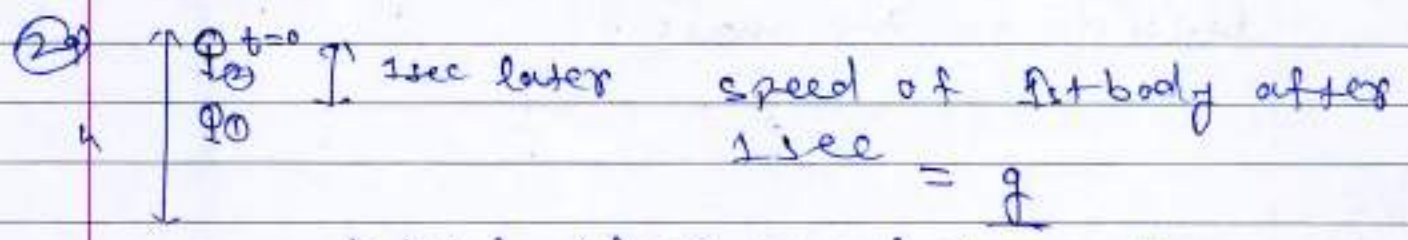 29 t=0
② 1sec later speed of 1st body after
h ① 1sec
= g